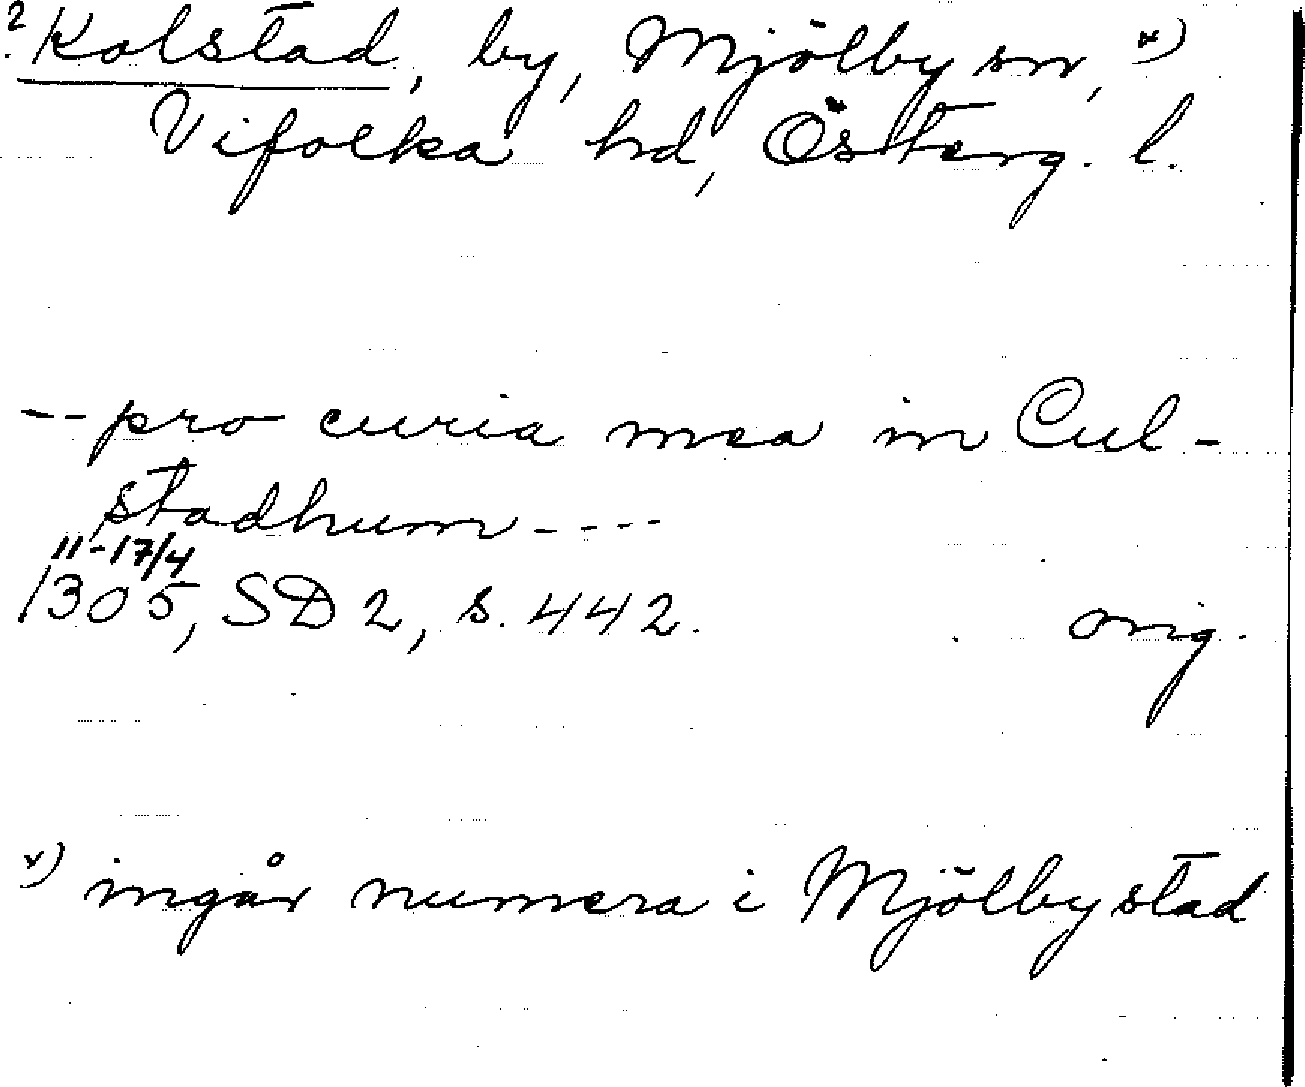 ? Kolstad, by, Mjölby sn, x)
Vifolka hd, Österg. l.
-- pro curia mea in Cul-
stadhum ----
11-17/4
1305, SD 2, s. 442. orig.
x) ingår numera i Mjölby stad